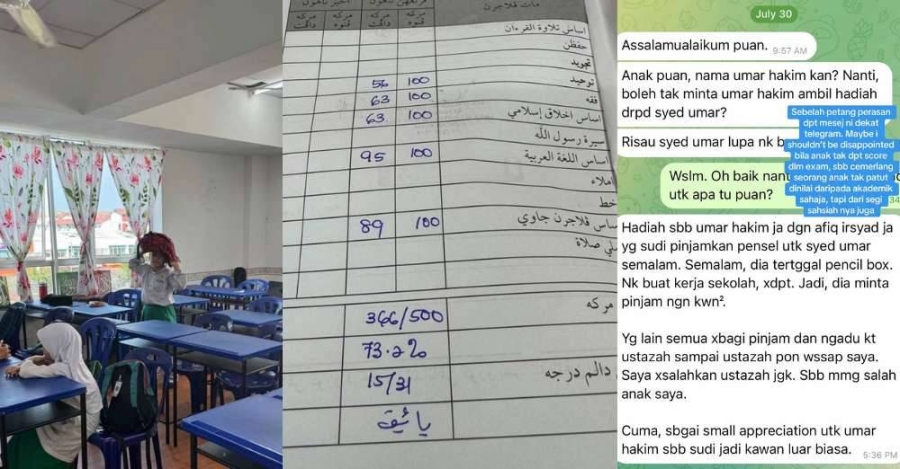 مات ڤلاجرن
ڤرتڠهن تاهون
اخير تاهون
مركه ڤنوه
مركه داڤت
مركه ڤنوه
مركه داڤت
اساس تلاوة القرءان
حفظن
تجويد
توحيد 100 56
فقه 100 63
اساس اخلاق إسلامي 100 63
سيرة رسول الله
اساس اللغة العربية 100 95
املاء
خط
ڤلاجرن جاوي 100 89
صلاة
مركه
366/500
73.2%
دالم درجه
15/31
July 30
Assalamualaikum puan. 9:57 AM
Anak puan, nama umar hakim kan? Nanti,
boleh tak minta umar hakim ambil hadiah
drpd syed umar?
Risau syed umar lupa nk b
Sebelah petang perasan
dpt mesej ni dekat
telegram. Maybe i
shouldn't be disappointed
bila anak tak dpt score
dlm exam, sbb cemerlang
seorang anak tak patut
dinilai daripada akademik
sahaja, tapi dari segi
sahsiah nya juga
Wslm. Oh baik nan
utk apa tu puan?
Hadiah sbb umar hakim ja dgn afiq irsyad ja
yg sudi pinjamkan pensel utk syed umar
semalam. Semalam, dia tertggal pencil box.
Nk buat kerja sekolah, xdpt. Jadi, dia minta
pinjam ngn kwn².
Yg lain semua xbagi pinjam dan ngadu kt
ustazah sampai ustazah pon wssap saya.
Saya xsalahkan ustazah jgk. Sbb mmg salah
anak saya.
Cuma, sbgai small appreciation utk umar
hakim sbb sudi jadi kawan luar biasa. 5:36 PM